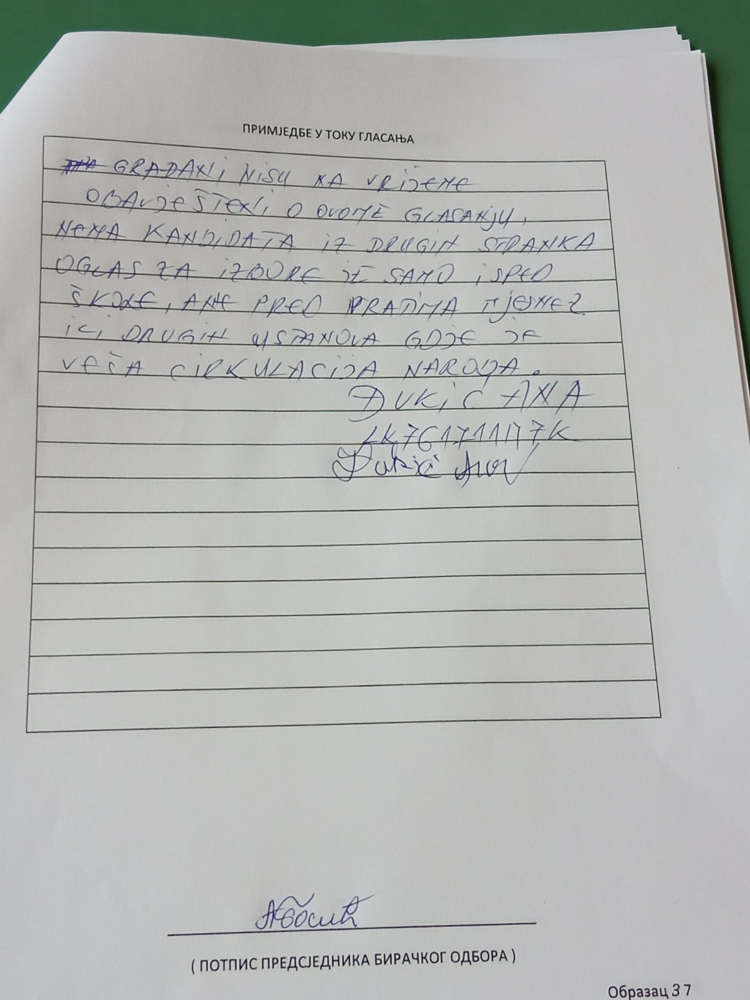 ПРИМЈЕДБЕ У ТОКУ ГЛАСАЊА
GRAĐANI NISU NA VRIJEME
OBAVJEŠTENI O OVOME GLASANJU,
NEMA KANDIDATA IZ DRUGIH STRANKA
OGLAS ZA IZBORE JE SAMO ISPED
ŠKOLE, A NE PRED VRATIMA MJESNEZ
ILI DRUGIH USTANOVA GDJE JE
VEĆA CIRKULACIJA NARODA.
ĐUKIĆ ANA
Đukić
( ПОТПИС ПРЕДСЈЕДНИКА БИРАЧКОГ ОДБОРА )
Образац 37